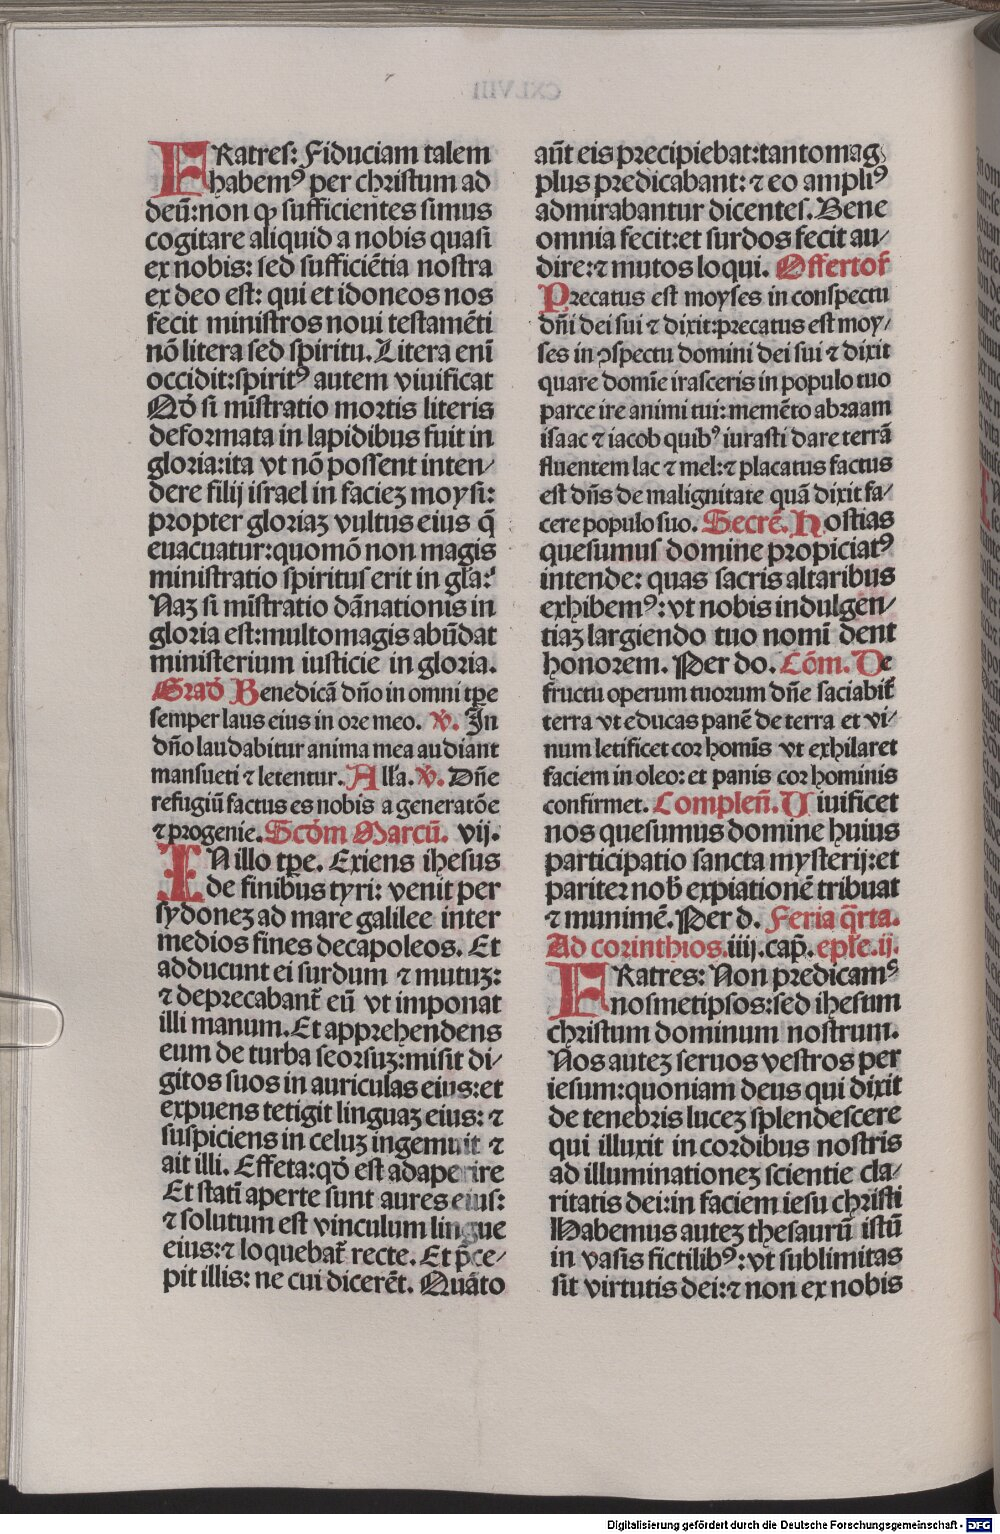 FRatres: Fiduciam talem
habemꝰ per christum ad
deū:non ꝙ sufficientes simus
cogitare aliquid a nobis quasi
ex nobis: sed sufficiētia nostra
ex deo est: qui et idoneos nos
fecit ministros noui testamēti
nō litera sed spiritu. Litera eni̅
occidit:spiritꝰ autem viuificat
Qđ si mi̅stratio mortis literis
deformata in lapidibus fuit in
gloria:ita vt nō possent inten/
dere filij israel in faciez moysi:
propter gloriaz vultus eius q̄
euacuatur:quomō non magis
ministratio spiritus erit in gl̄a:
Naz si mi̅stratio dānationis in
gloria est:multomagis abūdat
ministerium iusticie in gloria.
Građ Benedicā dn̄o in omni tp̄e
semper laus eius in ore meo. v̄. In
dn̄o laudabitur anima mea audiant
mansueti ⁊ letentur. All̄a. v̄. Dn̄e
refugiū factus es nobis a generatōe
⁊ progenie. Scđm Marcū. vij.
IN illo tp̄e. Exiens ihesus
de finibus tyri: venit per
sydonez ad mare galilee inter
medios fines decapoleos. Et
adducunt ei surdum ⁊ mutuz:
⁊ deprecabant̄ eū vt imponat
illi manum. Et apprehendens
eum de turba seorsuz:misit di/
gitos suos in auriculas eius:et
expuens tetigit linguaz eius: ⁊
suspiciens in celuz ingemuit ⁊
ait illi. Effeta:qđ est adaperire
Et stati̅ aperte sunt aures eius:
⁊ solutum est vinculum lingue
eius:⁊ loquebat̄ recte. Et p̄ce/
pit illis: ne cui dicerēt. Quāto
aūt eis precipiebat:tantomag̕
plus predicabant: ⁊ eo ampliꝰ
admirabantur dicentes. Bene
omnia fecit:et surdos fecit au/
dire:⁊ mutos loqui. Offertor̄
Precatus est moyses in conspectu
dn̄i dei sui ⁊ dixit:precatus est moy/
ses in ↄspectu domini dei sui ⁊ dixit
quare domi̅e irasceris in populo tuo
parce ire animi tui: memēto abraam
isaac ⁊ iacob quibꝰ iurasti dare terrā
fluentem lac ⁊ mel:⁊ placatus factus
est dn̄s de malignitate quā dixit fa/
cere populo suo. Secrē. Hostias
quesumus domine propiciatꝰ
intende: quas sacris altaribus
exhibemꝰ: vt nobis indulgen/
tiaz largiendo tuo nomi̅ dent
honorem. Per do. Cōm. De
fructu operum tuorum dn̄e saciabit̄
terra vt educas panē de terra et vi/
num letificet cor homi̅s vt exhilaret
faciem in oleo: et panis cor hominis
confirmet. Complen̄. Uiuificet
nos quesumus domine huius
participatio sancta mysterij:et
pariter nob̄ expiationē tribuat
⁊ munimē. Per d. Feria q̄rta.
Ad corinthios.iiij.cap̄. epl̄e.ii.
FRatres: Non predicamꝰ
nosmetipsos:sed ihesum
christum dominum nostrum.
Nos autez seruos vestros per
iesum:quoniam deus qui dixit
de tenebris lucez splendescere
qui illuxit in cordibus nostris
ad illuminationez scientie cla/
ritatis dei:in faciem iesu christi
Habemus autez thesaurū istū
in vasis fictilibꝰ: vt sublimitas
sit virtutis dei:⁊ non ex nobis
Digitalisierung gefördert durch die Deutsche Forschungsgemeinschaft - DFG